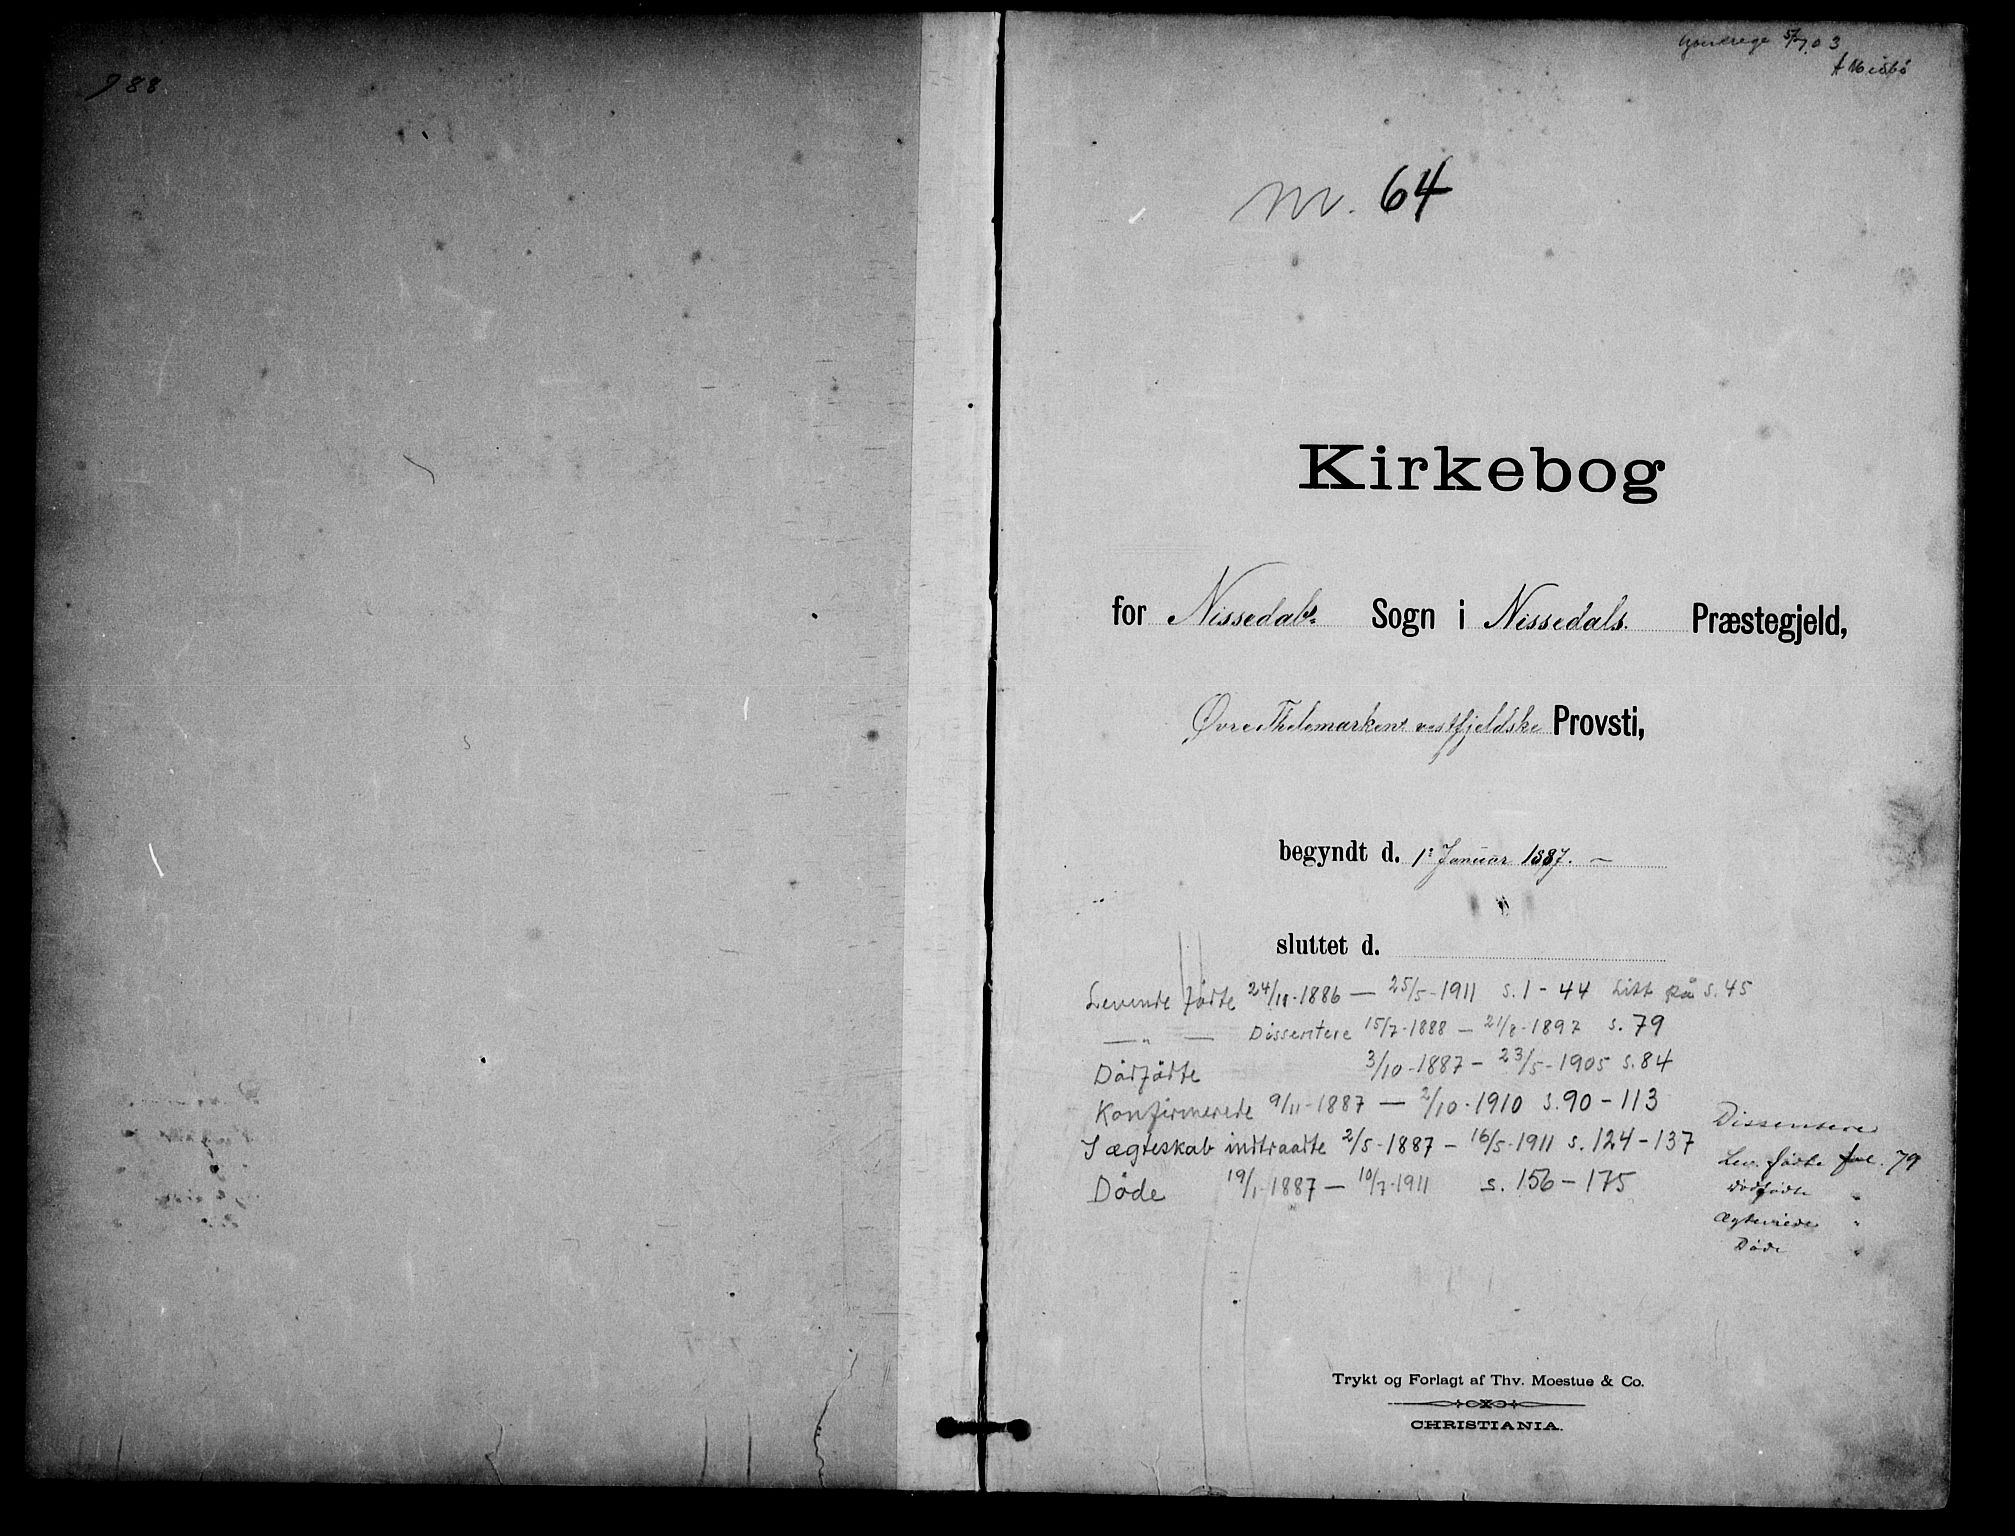 988
5/7 03
M. 64
Kirkebog
for Nissedals Sogn i Nissedals. Præstegjeld,
Øvre Thelemarkens vestfjeldske Provsti,
begyndt d. 1: Januar 1887. –
sluttet d.
Levende fødte 24/11-1886 — 25/5-1911 s. 1 - 44 Litt på s. 45
— " — Dissentere 15/7-1888 — 21/8-1897 s. 79
Dødfødte 3/10-1887 — 23/5-1905 s. 84
Konfirmerede 9/11-1887 — 2/10-1910 s. 90 - 113
I ægteskab indtraadte 2/5-1887 — 16/5-1911 s. 124 - 137
Døde 19/1-1887 — 10/7-1911 s. 156 - 175
Dissentere
Lev. fødte fol. 79
Dødfødte "
Ægteviede "
Døde "
Trykt og Forlagt af Thv. Moestue & Co.
CHRISTIANIA.